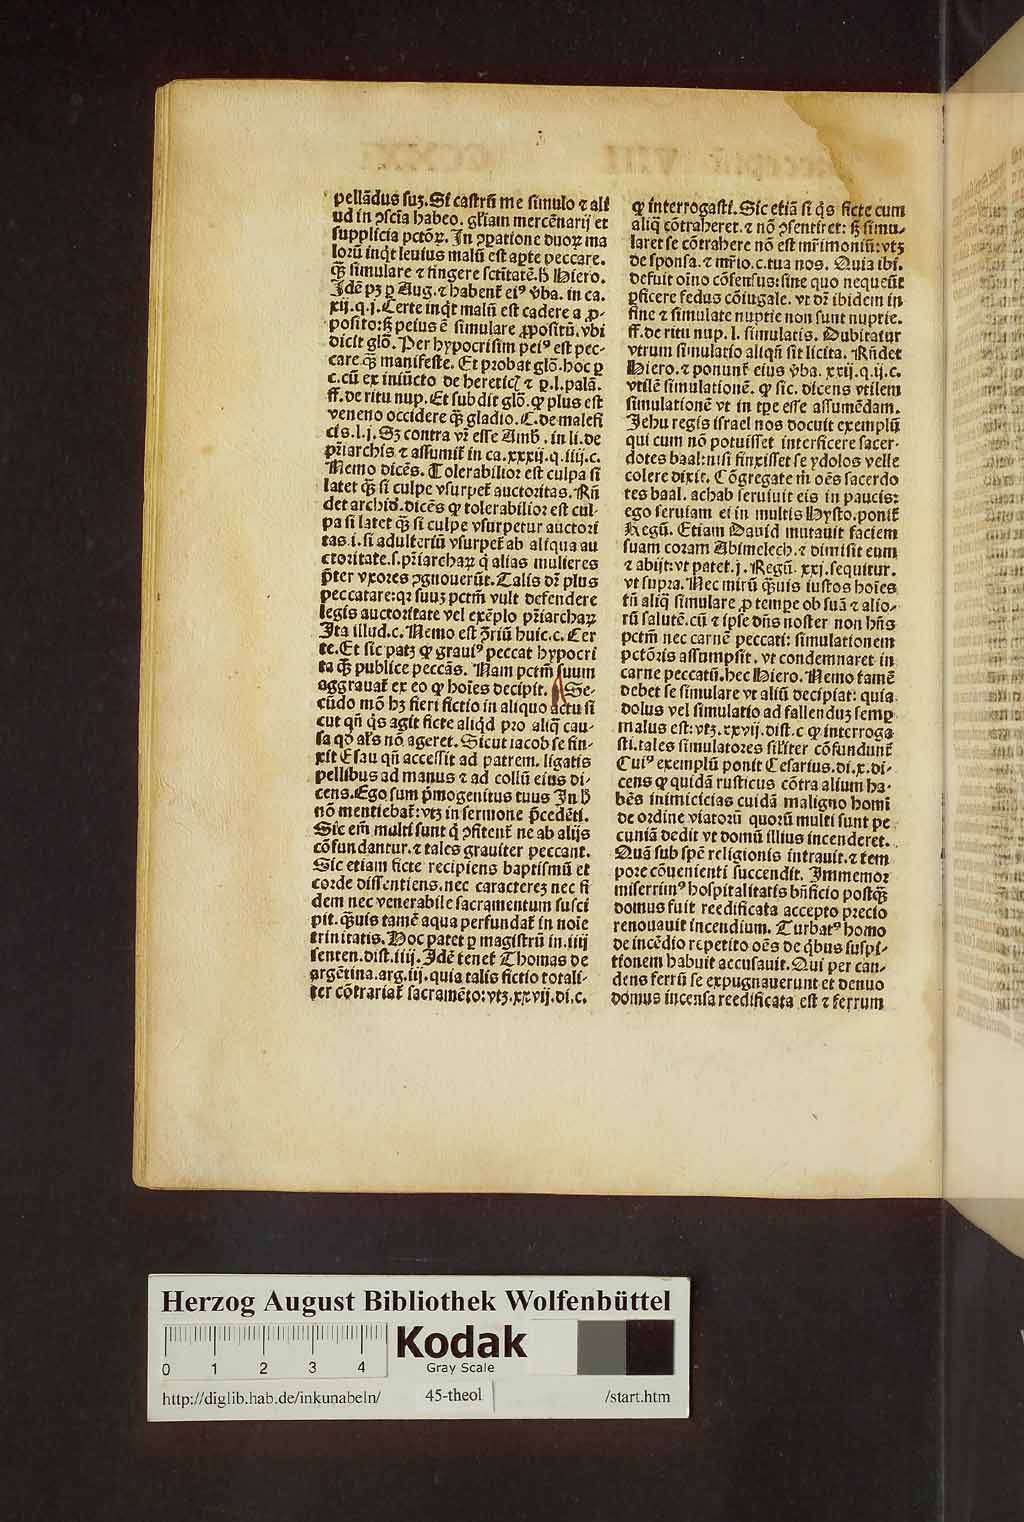 pellādus suꝫ. Si castrū me simulo ⁊ ali
ud in ꝯscīa habeo. gl'iam mercēnarij et
supplicia pctōꝝ. In ꝯꝑatione duoꝝ ma
lorū inqͥt leuius malū est aꝑte peccare.
qͣꝫ simulare ⁊ fingere sctitatē. h̄ Hiero.
Idē pꝫ ꝑ Aug. ⁊ habent᷑ eiꝰ v̄ba. in ca.
xij. q. j. Certe inqͥt malū est cadere a ꝓ-
posito: sꝫ peius ē simulare ꝓpositū. vbi
dicit glō. Per hypocrisim peiꝰ est pec-
care qͣꝫ manifeste. Et probat glō. hoc ꝑ
c. cū ex iniūcto de heretic̄ ⁊ ꝑ. l. palā.
ff. de ritu nup. Et subdit glō. ꝙ plus est
veneno occidere qͣꝫ gladio. C. de malefi
cis. l. j. Sꝫ contra vr̄ esse Amb̄. in li. de
pr̄iarchis ⁊ assumit᷑ in ca. xxxij. q. iiij. c.
Nemo dicēs. Tolerabilior est culpa si
latet qͣꝫ si culpe vsurpet᷑ auctoritas. Rn̄
det archid̄. dicēs ꝙ tolerabilior est cul-
pa si latet qͣꝫ si culpe vsurpetur auctori
tas. i. si adulteriū vsurpet᷑ ab aliqua au
ctoritate. s. pr̄iarchaꝝ qͥ alias mulieres
p̄ter vxores ꝯgnouerūt. Talis dr̄ plus
peccatare: qꝛ suuꝫ pctm̄ vult defendere
legis auctoritate vel exēplo pr̄iarchaꝝ
Ita illud. c. Nemo est ꝯ̄riū huic. c. Cer
te. Et sic patꝫ ꝙ grauiꝰ peccat hypocri
ta qͣꝫ publice peccās. Nam pctm̄ suum
aggrauat᷑ ex eo ꝙ hoīes decipit. Se-
cūdo mō hꝫ fieri fictio in aliquo actu si
cut qn̄ qͥs agit ficte aliqͥd pro aliqͣ cau-
sa qd̄ al's nō ageret. Sicut iacob se fin-
xit Esau qn̄ accessit ad patrem. ligatis
pellibus ad manus ⁊ ad collū eius di-
cens. Ego sum p̄mogenitus tuus In h̄
nō mentiebat᷑: vtꝫ in sermone p̄cedēti.
Sic em̄ multi sunt qͥ ꝯfitent᷑ ne ab alijs
cōfundantur. ⁊ tales grauiter peccant.
Sic etiam ficte recipiens baptismū et
corde dissentiens. nec caractereꝫ nec fi
dem nec venerabile sacramentum susci
pit. qͣꝫuis tamē aqua perfundat᷑ in noīe
trinitatis. Hoc patet ꝑ magistrū in. iiij
senten. dist. iiij. Idē tenet᷑ Thomas de
argētina. arg. iij. quia talis fictio totali-
ter cōtrariat᷑ sacramēto: vtꝫ. xxvij. di. c.
ꝙ interrogasti. Sic etiā si qͥs ficte cum
aliqͣ cōtraheret. ⁊ nō ꝯsentiret: sꝫ simu-
laret se cōtrahere nō est mr̄imoniū: vtꝫ
de sponsa. ⁊ mr̄io. c. tua nos. Quia ibi.
defuit oīno cōsensus: sine quo nequeūt
ꝑficere fedus cōiugale. vt dr̄ ibidem in
fine ⁊ simulate nuptie non sunt nuptie.
ff. de ritu nup. l. simulatis. Dubitatur
vtrum simulatio aliqn̄ sit licita. Rn̄det
Hiero. ⁊ ponunt᷑ eius v̄ba. xxij. q. ij. c.
vtilē simulationē. ꝙ sic. dicens vtilem
simulationē vt in tꝑe esse assumēdam.
Jehu regis israel nos docuit exemplū
qui cum nō potuisset interficere sacer-
dotes baal: nisi finxisset se ydolos velle
colere dixit. Cōgregate m̄ oēs sacerdo
tes baal. achab seruiuit eis in paucis:
ego seruiam ei in multis Hysto. ponit᷑
Regū. Etiam Dauid mutauit faciem
suam coram Abimelech. ⁊ dimisit eum
⁊ abijt: vt patet. j. Regū. xxj. sequitur.
vt supra. Nec mirū qͣꝫuis iustos hoīes
tn̄ aliqͣ simulare ꝓ tempe ob suā ⁊ alio-
rū salutē. cū ⁊ ipse dn̄s noster non hn̄s
pctm̄ nec carnē peccati: simulationem
pctōris assumpsit. vt condemnaret in
carne peccatū. hec Hiero. Nemo tamē
debet se simulare vt aliū decipiat: quia
dolus vel simulatio ad fallenduꝫ semꝑ
malus est: vtꝫ. xxvij. dist. c ꝙ interroga
sti. tales simulatores sil'iter cōfundunt᷑
Cuiꝰ exemplū ponit Cesarius. di. x. di-
cens ꝙ quidā rusticus cōtra alium ha-
bēs inimicicias cuidā maligno homī
de ordine viatorū quorū multi sunt pe
cuniā dedit vt domū illius incenderet.
Quā sub spē religionis intrauit. ⁊ tem
pore cōuenienti succendit. Immemor
miserrimꝰ hospitalitatis bn̄ficio postqͣꝫ
domus fuit reedificata accepto precio
renouauit incendium. Turbatꝰ homo
de incēdio repetito oēs de qͥbus suspi-
tionem habuit accusauit. Qui per can-
dens ferrū se expugnauerunt et denuo
domus incensa reedificata est ⁊ ferrum
Herzog August Bibliothek Wolfenbüttel
0 1 2 3 4
Kodak
Gray Scale
http://diglib.hab.de/inkunabeln/ 45-theol /start.htm